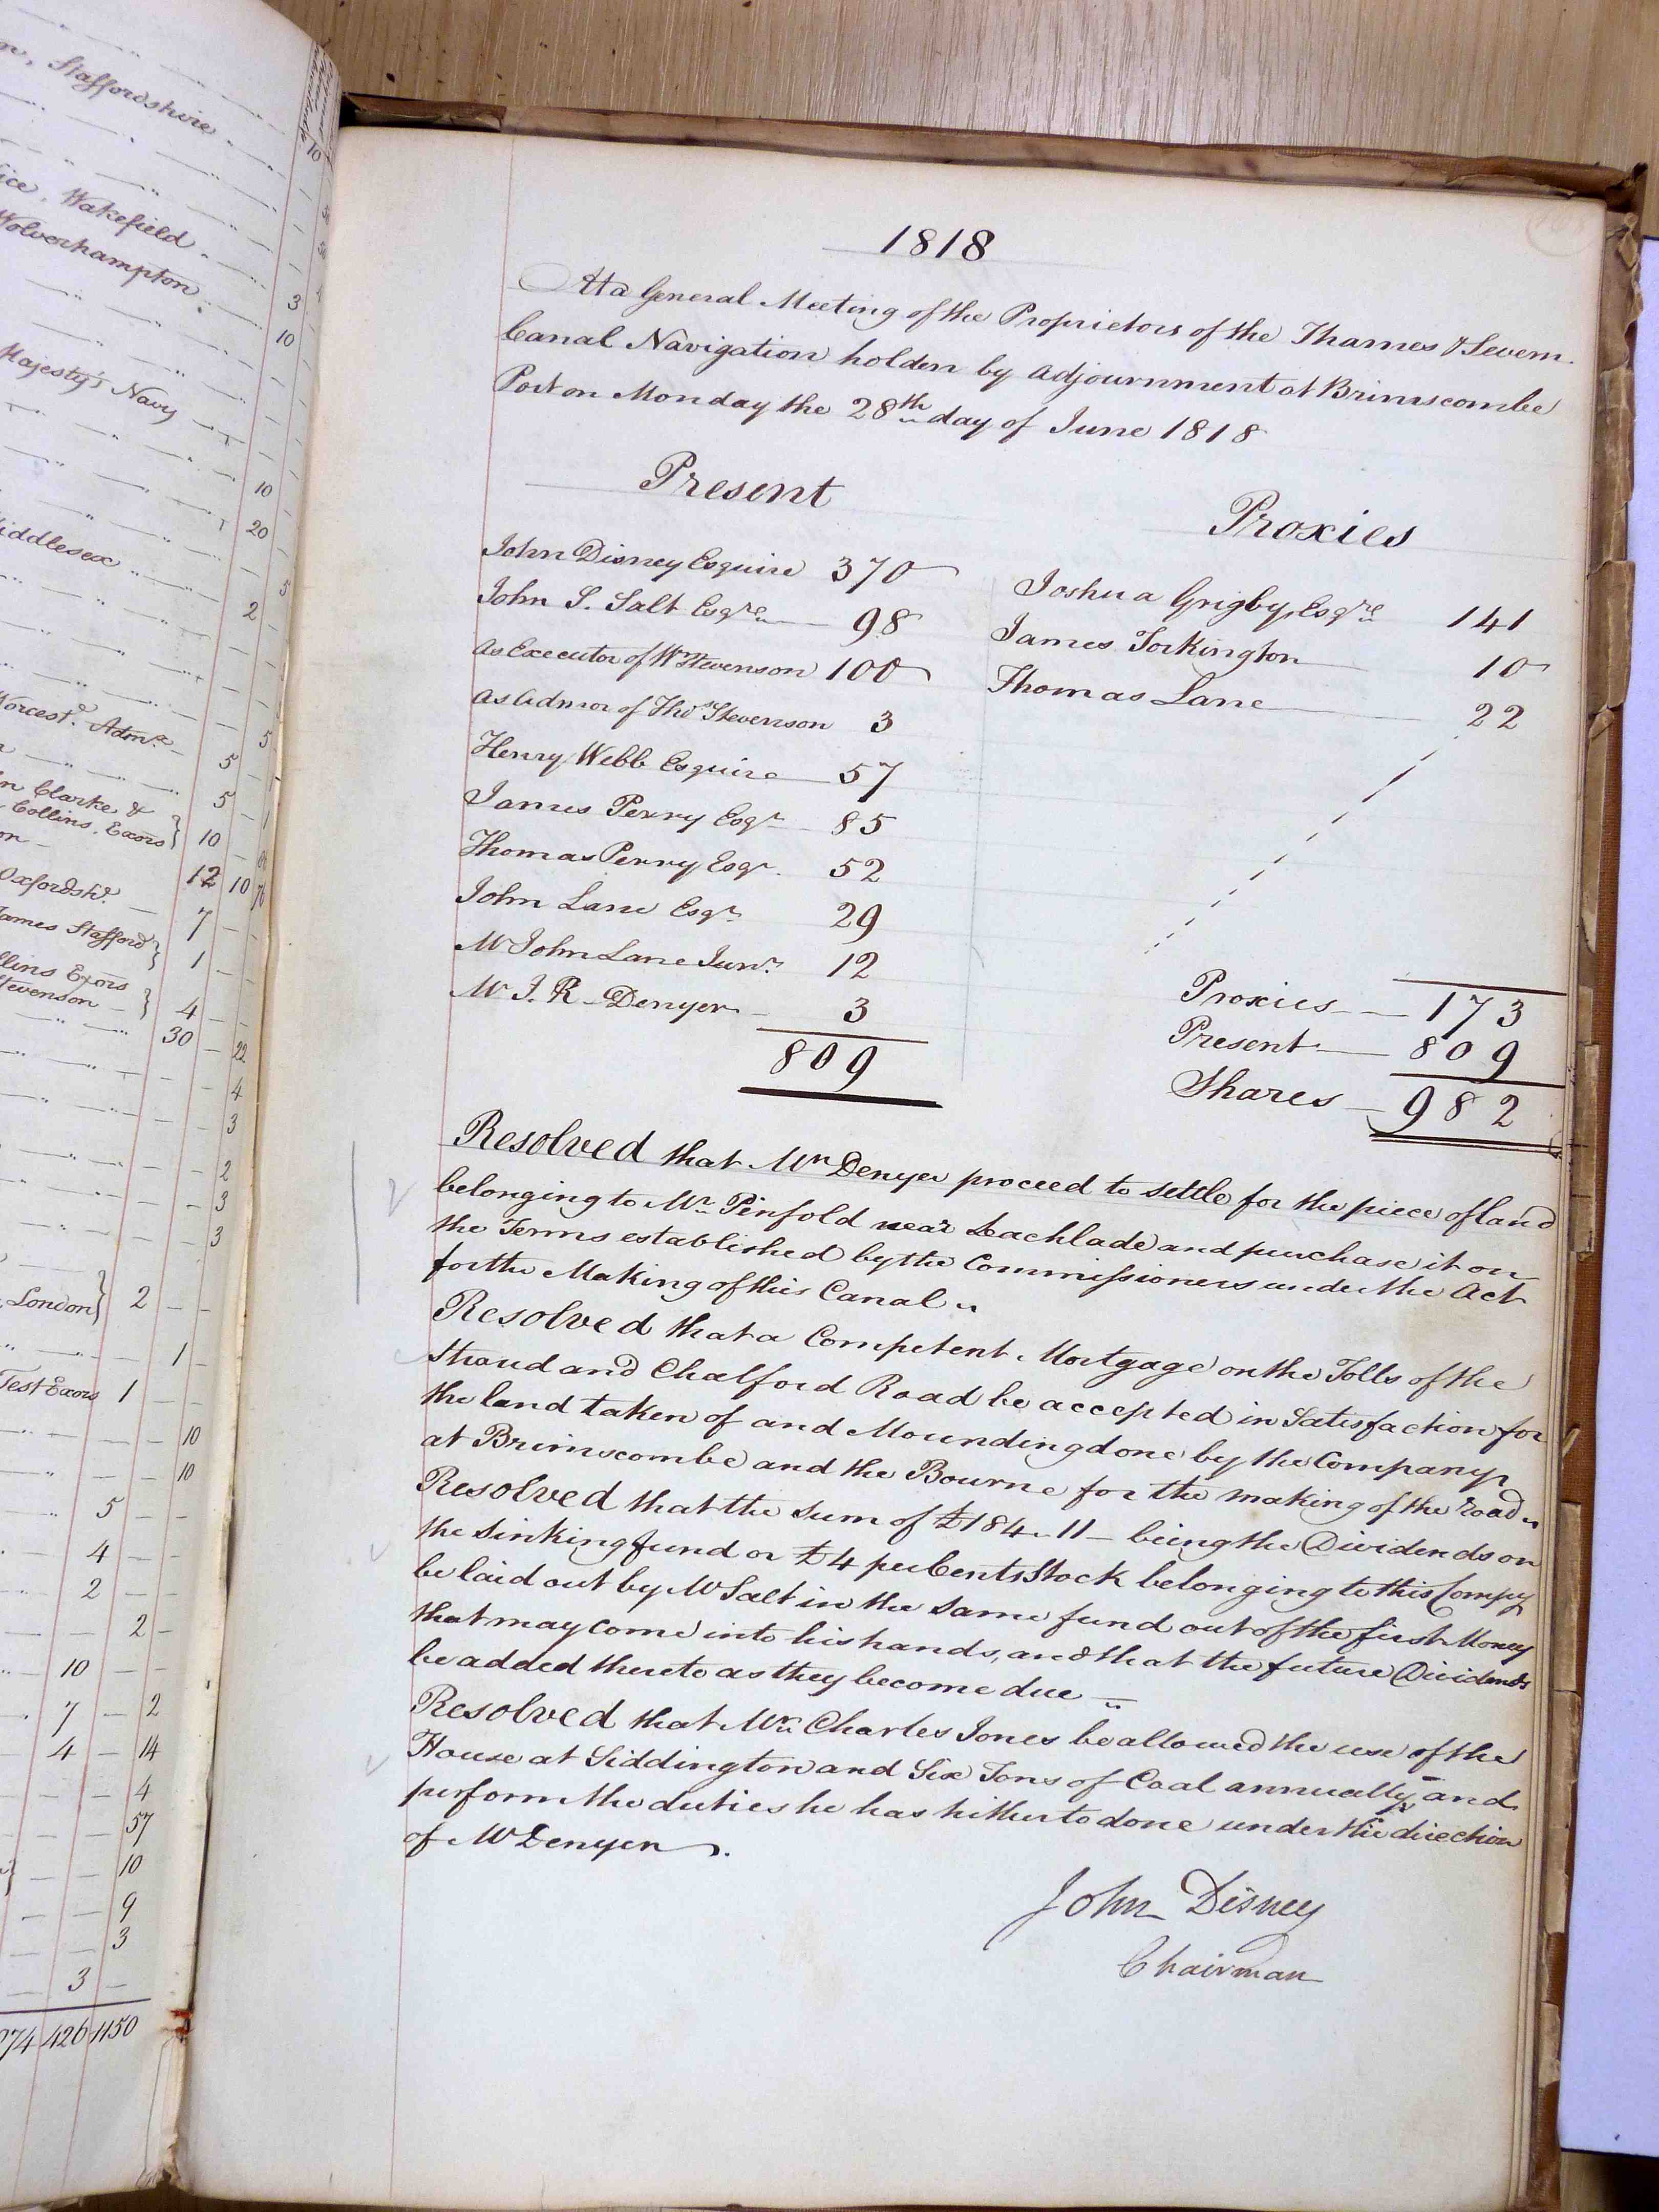 n, Staffordshire
10
ice, Wakefield
Wolverhampton
3
10
Majesty's Navy
10
20
iddlesex
5
2
Worcest. Admx.
5
5
5
n Clarke &
Collins, Exors } 10
on
12 10
Oxfordsh.
7
James Stafford }
1
llins Exors
tevenson } 4
30 22
4
3
2
3
3
London } 2
1
Test Exors 1
10
10
5
4
2
2
10
7 2
4 14
4
57
10
9
3
3
274 426 1150
1818
At a General Meeting of the Proprietors of the Thames & Severn
Canal Navigation holden by adjournment at Brimscombe
Port on Monday the 28th day of June 1818
Present
John Disney Esquire 370
John S. Salt Esqre 98
as Executor of Wm Stevenson 100
as admor of Thos Stevenson 3
Henry Webb Esquire 57
James Perry Esqr 85
Thomas Perry Esqr. 52
John Lane Esqr 29
Mr John Lane Junr. 12
Mr J. R. Denyer 3
809
Proxies
Joshua Grigby, Esqre 141
James Torkington 10
Thomas Lane 22
Proxies 173
Present 809
Shares 982
Resolved that Mr Denyer proceed to settle for the piece of land
belonging to Mr Pinfold near Leachlade and purchase it on
the Terms established by the Commissioners under the Act
for the Making of this Canal
Resolved that a Competent Mortgage on the Tolls of the
Stroud and Chalford Road be accepted in Satisfaction for
the land taken of and Mounding done by the Company
at Brimscombe and the Bourne for the making of the road
Resolved that the Sum of £184 " 11 – being the Dividends on
the Sinking fund or £4 per Cents Stock belonging to this Compy
be laid out by Mr Salt in the Same fund out of the first Money
that may come into his hands, and that the future Dividends
be added thereto as they become due
Resolved that Mr Charles Jones be allowed the use of the
House at Siddington and Six Tons of Coal annually, and
perform the duties he has hitherto done under the direction
of Mr Denyer.
John Disney
Chairman